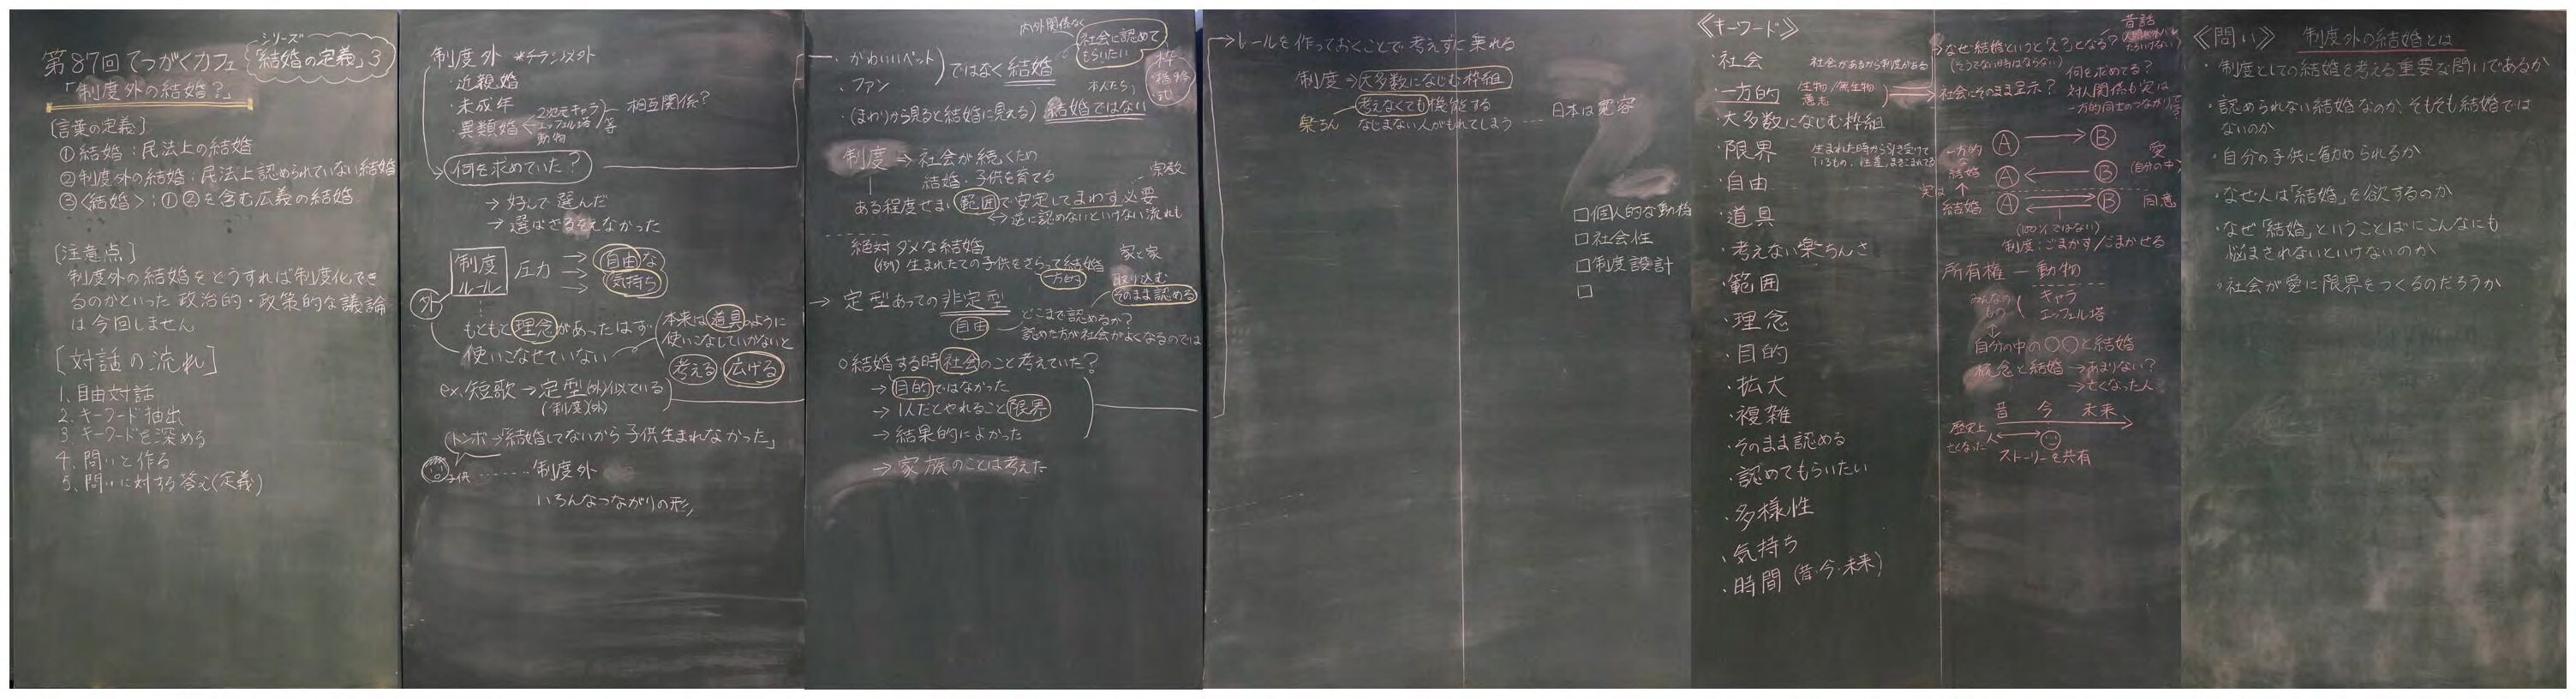 第87回てつがくカフェ
シリーズ
「結婚の定義」3
「制度外の結婚?」
[言葉の定義]
①結婚:民法上の結婚
②制度外の結婚:民法上認められていない結婚
③〈結婚〉:①②を含む広義の結婚
[注意点]
制度外の結婚をどうすれば制度化でき
るのかといった政治的・政策的な議論
は今回しません
[対話の流れ]
1、自由対話
2、キーワード抽出
3、キーワードを深める
4、問いを作る
5、問いに対する答え(定義)
制度外
・近親婚
・未成年
・異類婚
2次元キャラ
エッフェル塔
動物
等
相互関係?
何を求めていた?
→好して選んだ
→選ばざるをえなかった
制度
ルール
圧力
自由な
気持ち
外
もともと理念があったはず
使いこなせていない
本来は道具のように
使いこなしていかないと
考える
広げる
ex.短歌→定型(外)似ている
(制度)(外)
トンボ→「結婚してないから子供生まれなかった」
子供
制度外
いろんなつながりの形
・かわいいペット
・ファン
ではなく結婚
内外関係なく
社会に認めて
もらいたい
枠
(まわりから見ると結婚に見える)
結婚ではない
制度→社会が続くため
結婚・子供を育てる
宗教
ある程度せまい範囲で安定してまわす必要
逆に認めないといけない流れも
絶対ダメな結婚
(例)生まれたての子供をさらって結婚
一方的
家と家
取り込む
そのまま認める
→定型あっての非定型
自由
どこまで認めるか?
認めた方が社会がよくなるのでは
○結婚する時社会のこと考えていた?
→目的ではなかった
→1人だとやれること限界
→結果的によかった
→家族のことは考えた
レールを作っておくことで考えずに乗れる
制度→大多数になじむ枠組
考えなくても機能する
楽ちん
なじまない人がもれてしまう
日本は寛容
□個人的な動機
□社会性
□制度設計
□
《キーワード》
・社会
社会があるから制度がある
・一方的
生物/無生物
意志
・大多数になじむ枠組
・限界
・自由
・道具
・考えない楽ちんさ
・範囲
・理念
・目的
・拡大
・複雑
・そのまま認める
・認めてもらいたい
・多様性
・気持ち
・時間(昔・今・未来)
昔話
なぜ結婚というと「え?」となる?
社会にそのまま呈示?
何を求めてる?
対人関係も実は
一方的同士のつながり
一方的
な
結婚
A
B
愛
(自分の中)
A
B
実は
結婚
A
B
同意
(100%ではない)
制度:ごまかす/ごまかせる
所有権―動物
みんなの
もの
キャラ
エッフェル塔
自分の中の○○と結婚
概念と結婚→あまりない?
→亡くなった人
昔 今 未来
歴史上
亡くなった人
ストーリーを共有
《問い》
制度外の結婚とは
・制度としての結婚を考える重要な問いであるか
・認められない結婚なのか、そもそも結婚では
ないのか
・自分の子供に勧められるか
・なぜ人は「結婚」を欲するのか
・なぜ「結婚」ということばにこんなにも
悩まされないといけないのか
・社会が愛に限界をつくるのだろうか